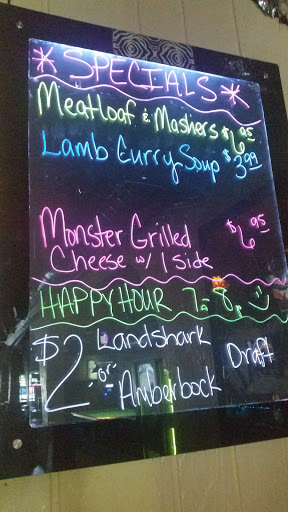 * SPECIALS *
Meatloaf & Mashers $6.95
Lamb Curry Soup $3.99
Monster Grilled $6.95
Cheese w/ 1 side
HAPPY HOUR 7a-8p
$2 Landshark
-or- Draft
Amberbock